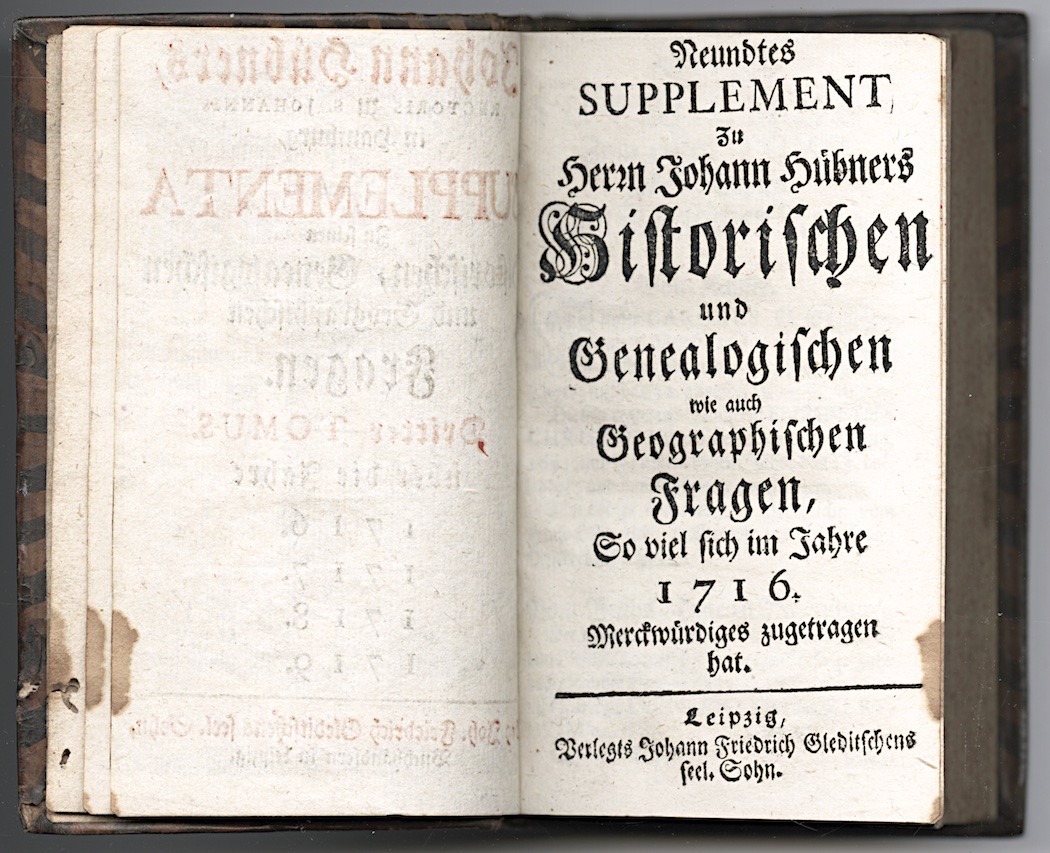 Neundtes
SUPPLEMENT,
Zu
Herrn Johann Hübners
Historischen
und
Genealogischen
wie auch
Geographischen
Fragen,
So viel sich im Jahre
1716.
Merckwürdiges zugetragen
hat.
Leipzig,
Verlegts Johann Friedrich Gleditschens
seel. Sohn.